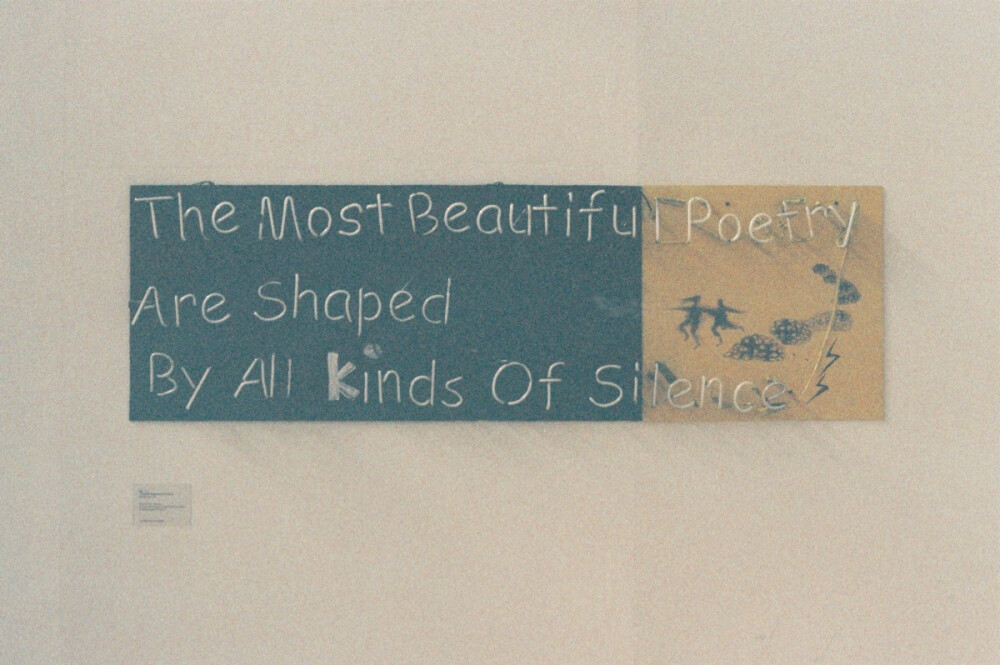 The Most Beautiful Poetry
Are Shaped
By All Kinds Of Silence